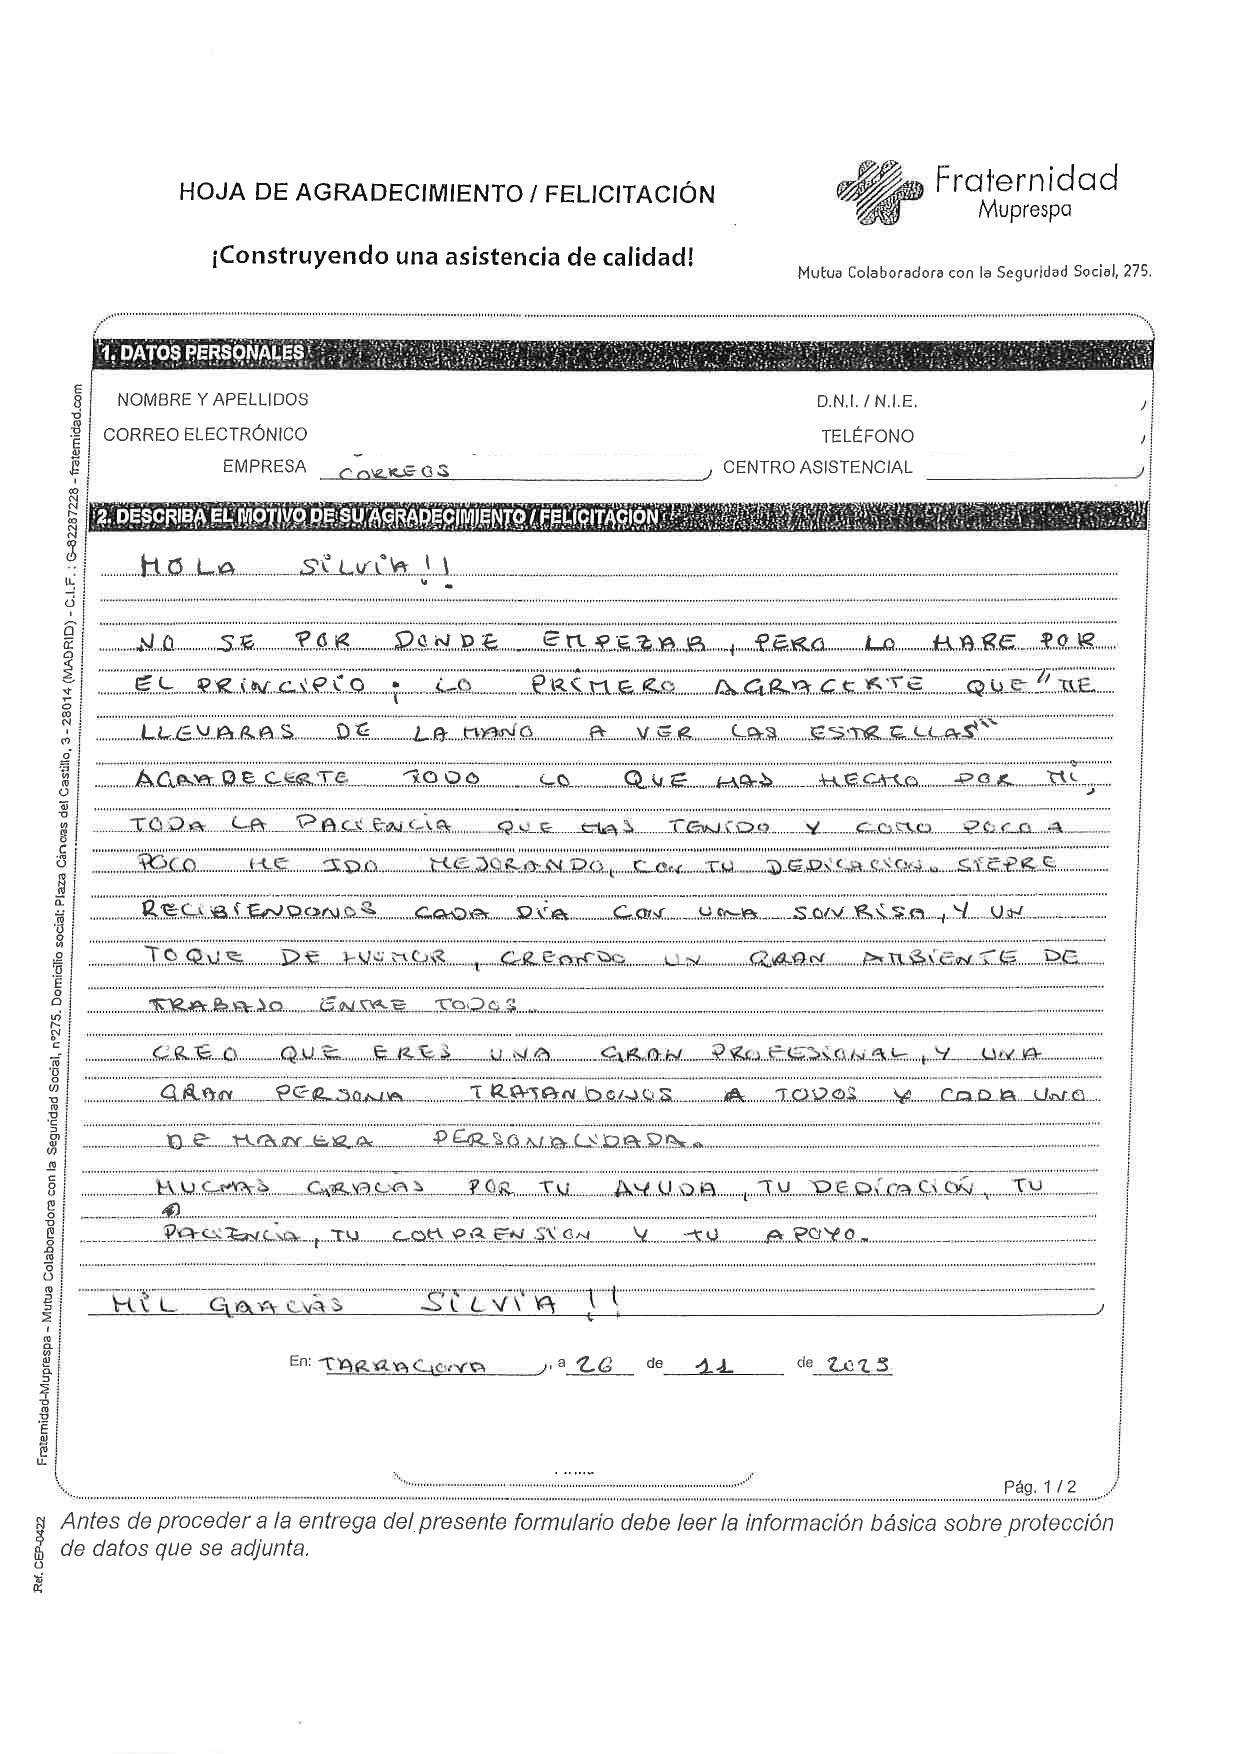 HOJA DE AGRADECIMIENTO / FELICITACIÓN
Fraternidad
Muprespa
¡Construyendo una asistencia de calidad!
Mutua Colaboradora con la Seguridad Social, 275.
1. DATOS PERSONALES
NOMBRE Y APELLIDOS
D.N.I. / N.I.E.
CORREO ELECTRÓNICO
TELÉFONO
EMPRESA CORREOS, CENTRO ASISTENCIAL
2. DESCRIBA EL MOTIVO DE SU AGRADECIMIENTO / FELICITACIÓN:
HOLA SILVIA!!
NO SE POR DONDE EMPEZAR, PERO LO HARE POR
EL PRINCIPIO; LO PRIMERO AGRACERTE QUE "ME
LLEVARAS DE LA MANO A VER LAS ESTRELLAS"
AGRADECERTE TODO LO QUE HAS HECHO POR MÍ,
TODA LA PACIENCIA QUE HAS TENIDO Y COMO POCO A
POCO HE IDO MEJORANDO, CON TU DEDICACION. SIEPRE
RECIBIENDONOS CADA DÍA CON UNA SONRISA, Y UN
TOQUE DE HUMOR, CREANDO UN GRAN AMBIENTE DE
TRABAJO ENTRE TODOS.
CREO QUE ERES UNA GRAN PROFESIONAL, Y UNA
GRAN PERSONA TRATANDONOS A TODOS Y CADA UNO
DE MANERA PERSONALIDADA.
MUCHAS GRACIAS POR TU AYUDA, TU DEDICACIÓN, TU
PACIENCIA, TU COMPRENSION Y TU APOYO.
MIL GRACIAS SILVIA!!
En: TARRAGONA, a 26 de 11 de 2023
Pág. 1 / 2
Antes de proceder a la entrega del presente formulario debe leer la información básica sobre protección
de datos que se adjunta.
Fraternidad-Muprespa – Mutua Colaboradora con la Seguridad Social, nº275. Domicilio social: Plaza Cánovas del Castillo, 3 - 28014 (MADRID) – C.I.F.: G-82287228 - fraternidad.com
Ref. CEP-0422